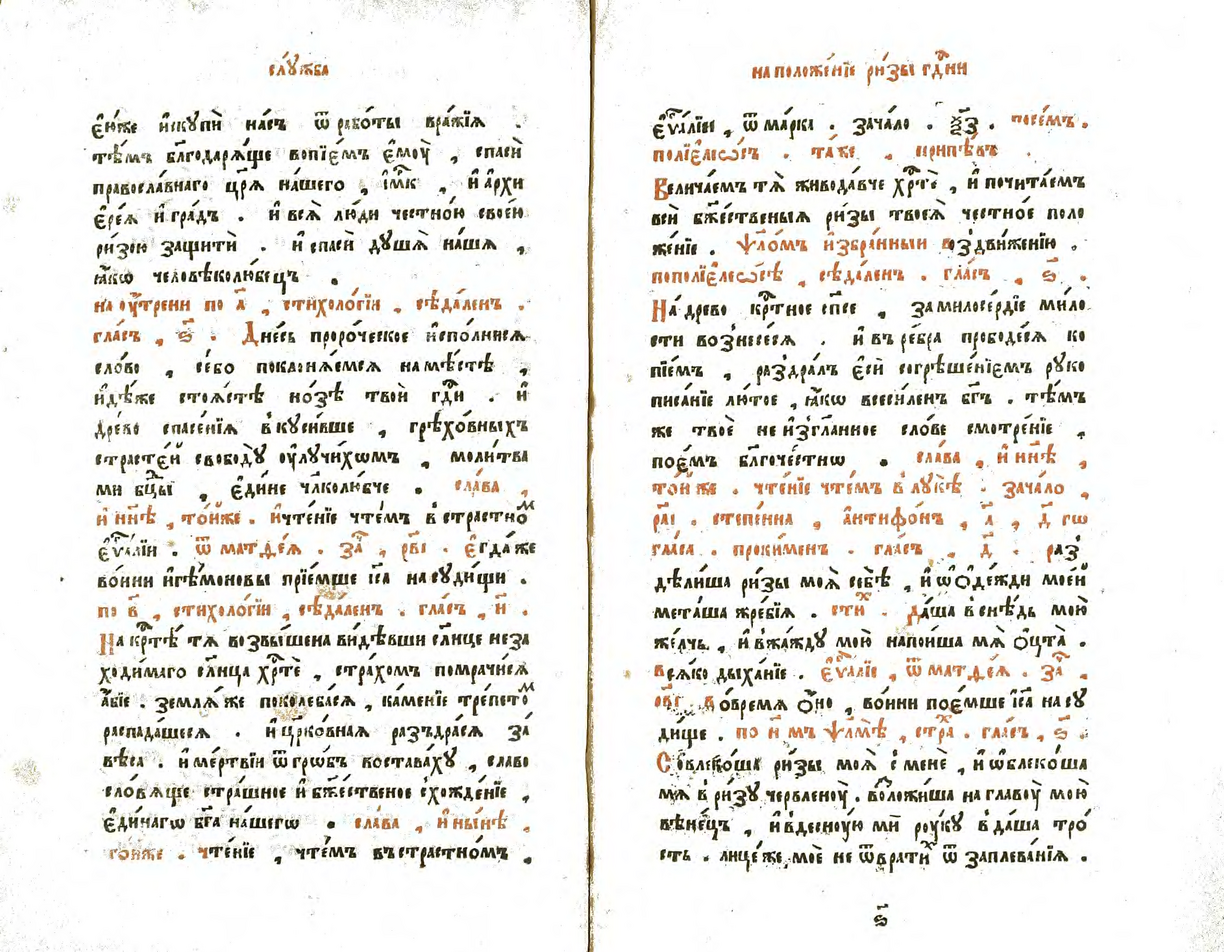 слꙋ́жба
є҆́юже и҆скꙋпѝ на́съ ѿ рабо́ты вра́жїѧ .
тѣ́мъ бл҃годарѧ́ще вопїе́мъ є҆мо́у , спасѝ
правосла́внаго цр҃ѧ̀ на́шего , і҆м҃к , и҆ а҆рхи
є҆ре́ѧ и҆ гра́дъ . и҆ всѧ̀ лю́ди честно́ю свое́ю
ри́зою защитѝ . и҆ спасѝ дꙋ́шѧ на́шѧ ,
ꙗ҆́кѡ человѣколю́бецъ .
на оу҆́трени по а҃ , стихоло́гїи , сѣда́ленъ .
гла́съ , ѕ҃ . Дне́сь проро́ческое и҆спо́лнисѧ
сло́во , се́бо покланѧ́емсѧ на мѣ́стѣ ,
и҆дѣ́же стоѧ́стѣ но́зѣ твоѝ гд҇и . и҆
дре́во спасе́нїѧ вкꙋси́вше , грѣхо́вныхъ
страсте́й свобо́дꙋ оу҆лꙋчи́хѡмъ , моли́тва
ми бц҃ы , є҆ди́не чл҃колю́бче . сла́ва ,
и҆ нн҃ѣ , то́йже . и҆ чте́нїе чте́мъ в стра́стно
є҆ѵⷢ҇а́лїи . ѿ матѳе́ѧ . за҃ , рв҃і . Є҆гда́ же
во́ини и҆ге́моновы прїе́мше і҆с҃а на сꙋди́щи .
по в҃ , стихоло́гїи , сѣда́ленъ . гла́съ , и҃ .
На крⷭ҇тѣ́ тѧ возвы́шена ви́дѣвши сл҃нце неза
ходи́маго сл҃нца хрⷭ҇тѐ , стра́хомъ помрачи́сѧ
а҆́бїе . землѧ́ же поколеба́сѧ , ка́менїе тре́пето
распада́шесѧ . и҆ цр҃ко́внаѧ раздра́сѧ за
вѣ́са . и҆ ме́ртвїи ѿ гро́бъ воставахꙋ , славо
сло́вѧще стра́шное и҆ бж҃е́ственое схожде́нїе ,
є҆ди́нагѡ бг҃а на́шегѡ . сла́ва , и҆ ны́нѣ ,
то́йже . чте́нїе , чте́мъ въ стра́стномъ .
на положе́нїе ри́зы гдⷭ҇ни
є҆ѵⷢ҇а́лїи , ѿ ма́рка . зача́ло . ѯ҃з . посе́мъ .
полїе҆ле́ѡсъ . та́же , припѣ́въ
Велича́емъ тѧ̀ живода́вче хрⷭ҇тѐ , и҆ почита́емъ
всѝ бж҃е́ственыѧ ри́зы твоеѧ̀ честно́е поло
же́нїе . ѱало́мъ и҆збра́нныи воздвиже́нїю .
по полїе҆ле́ѡсѣ , сѣда́ленъ . гла́съ , ѕ҃ .
На́ древо крⷭ҇тное сп҃се , за милосе́рдїе мило
сти вознесе́сѧ . и҆ въ ре́бра прободе́сѧ ко
пїе́мъ , раздра́лъ є҆сѝ согрѣше́нїемъ рꙋко
писа́нїе лю́тое , ꙗ҆́кѡ всеси́ленъ бг҃ъ . тѣ́мъ
же твоѐ неи҆згла́нное сло́ве смотре́нїе ,
пое́мъ бл҃гоче́стнѡ . сла́ва , и҆ нн҃ѣ ,
то́й же . чте́нїе чте́мъ в лꙋкѣ̀ . зача́ло ,
ра҃і . степе́нна , а҆нтифо́нъ , а҃ , д҃ гѡ
гла́са . проки́менъ . гла́съ , д҃ . раз
дѣли́ша ри́зы моѧ̀ себѣ̀ , и҆ ѡ҆ ѻ҆де́жди мое́й
мета́ша жре́бїѧ . сти́х . да́ша в снѣ́дь мою̀
же́лчь , и҆ в жа́ждꙋ мою̀ напои́ша мѧ̀ ѻ҆́цта .
всѧ́ко дыха́нїе . є҆ѵⷢ҇а́лїе , ѿ матѳе́ѧ . за҃ ,
во вре́мѧ ѻ҆́но , во́ини пое́мше і҆с҃а на сꙋ
ди́ще . по н҃ мъ ѱалмѣ̀ , стра . гла́съ , ѕ҃ .
Совлеко́ша ри́зы моѧ̀ с менѐ , и҆ ѡ҆блеко́ша
мѧ в ри́зꙋ червле́ноу . возложи́ша на главоу̀ мою̀
вѣне́цъ , и҆ в десноу́ю мѝ роу́кꙋ вда́ша тро́
сть . лице́ же моѐ не ѿврати́х ѿ заплева́нїѧ .
ѕ҃